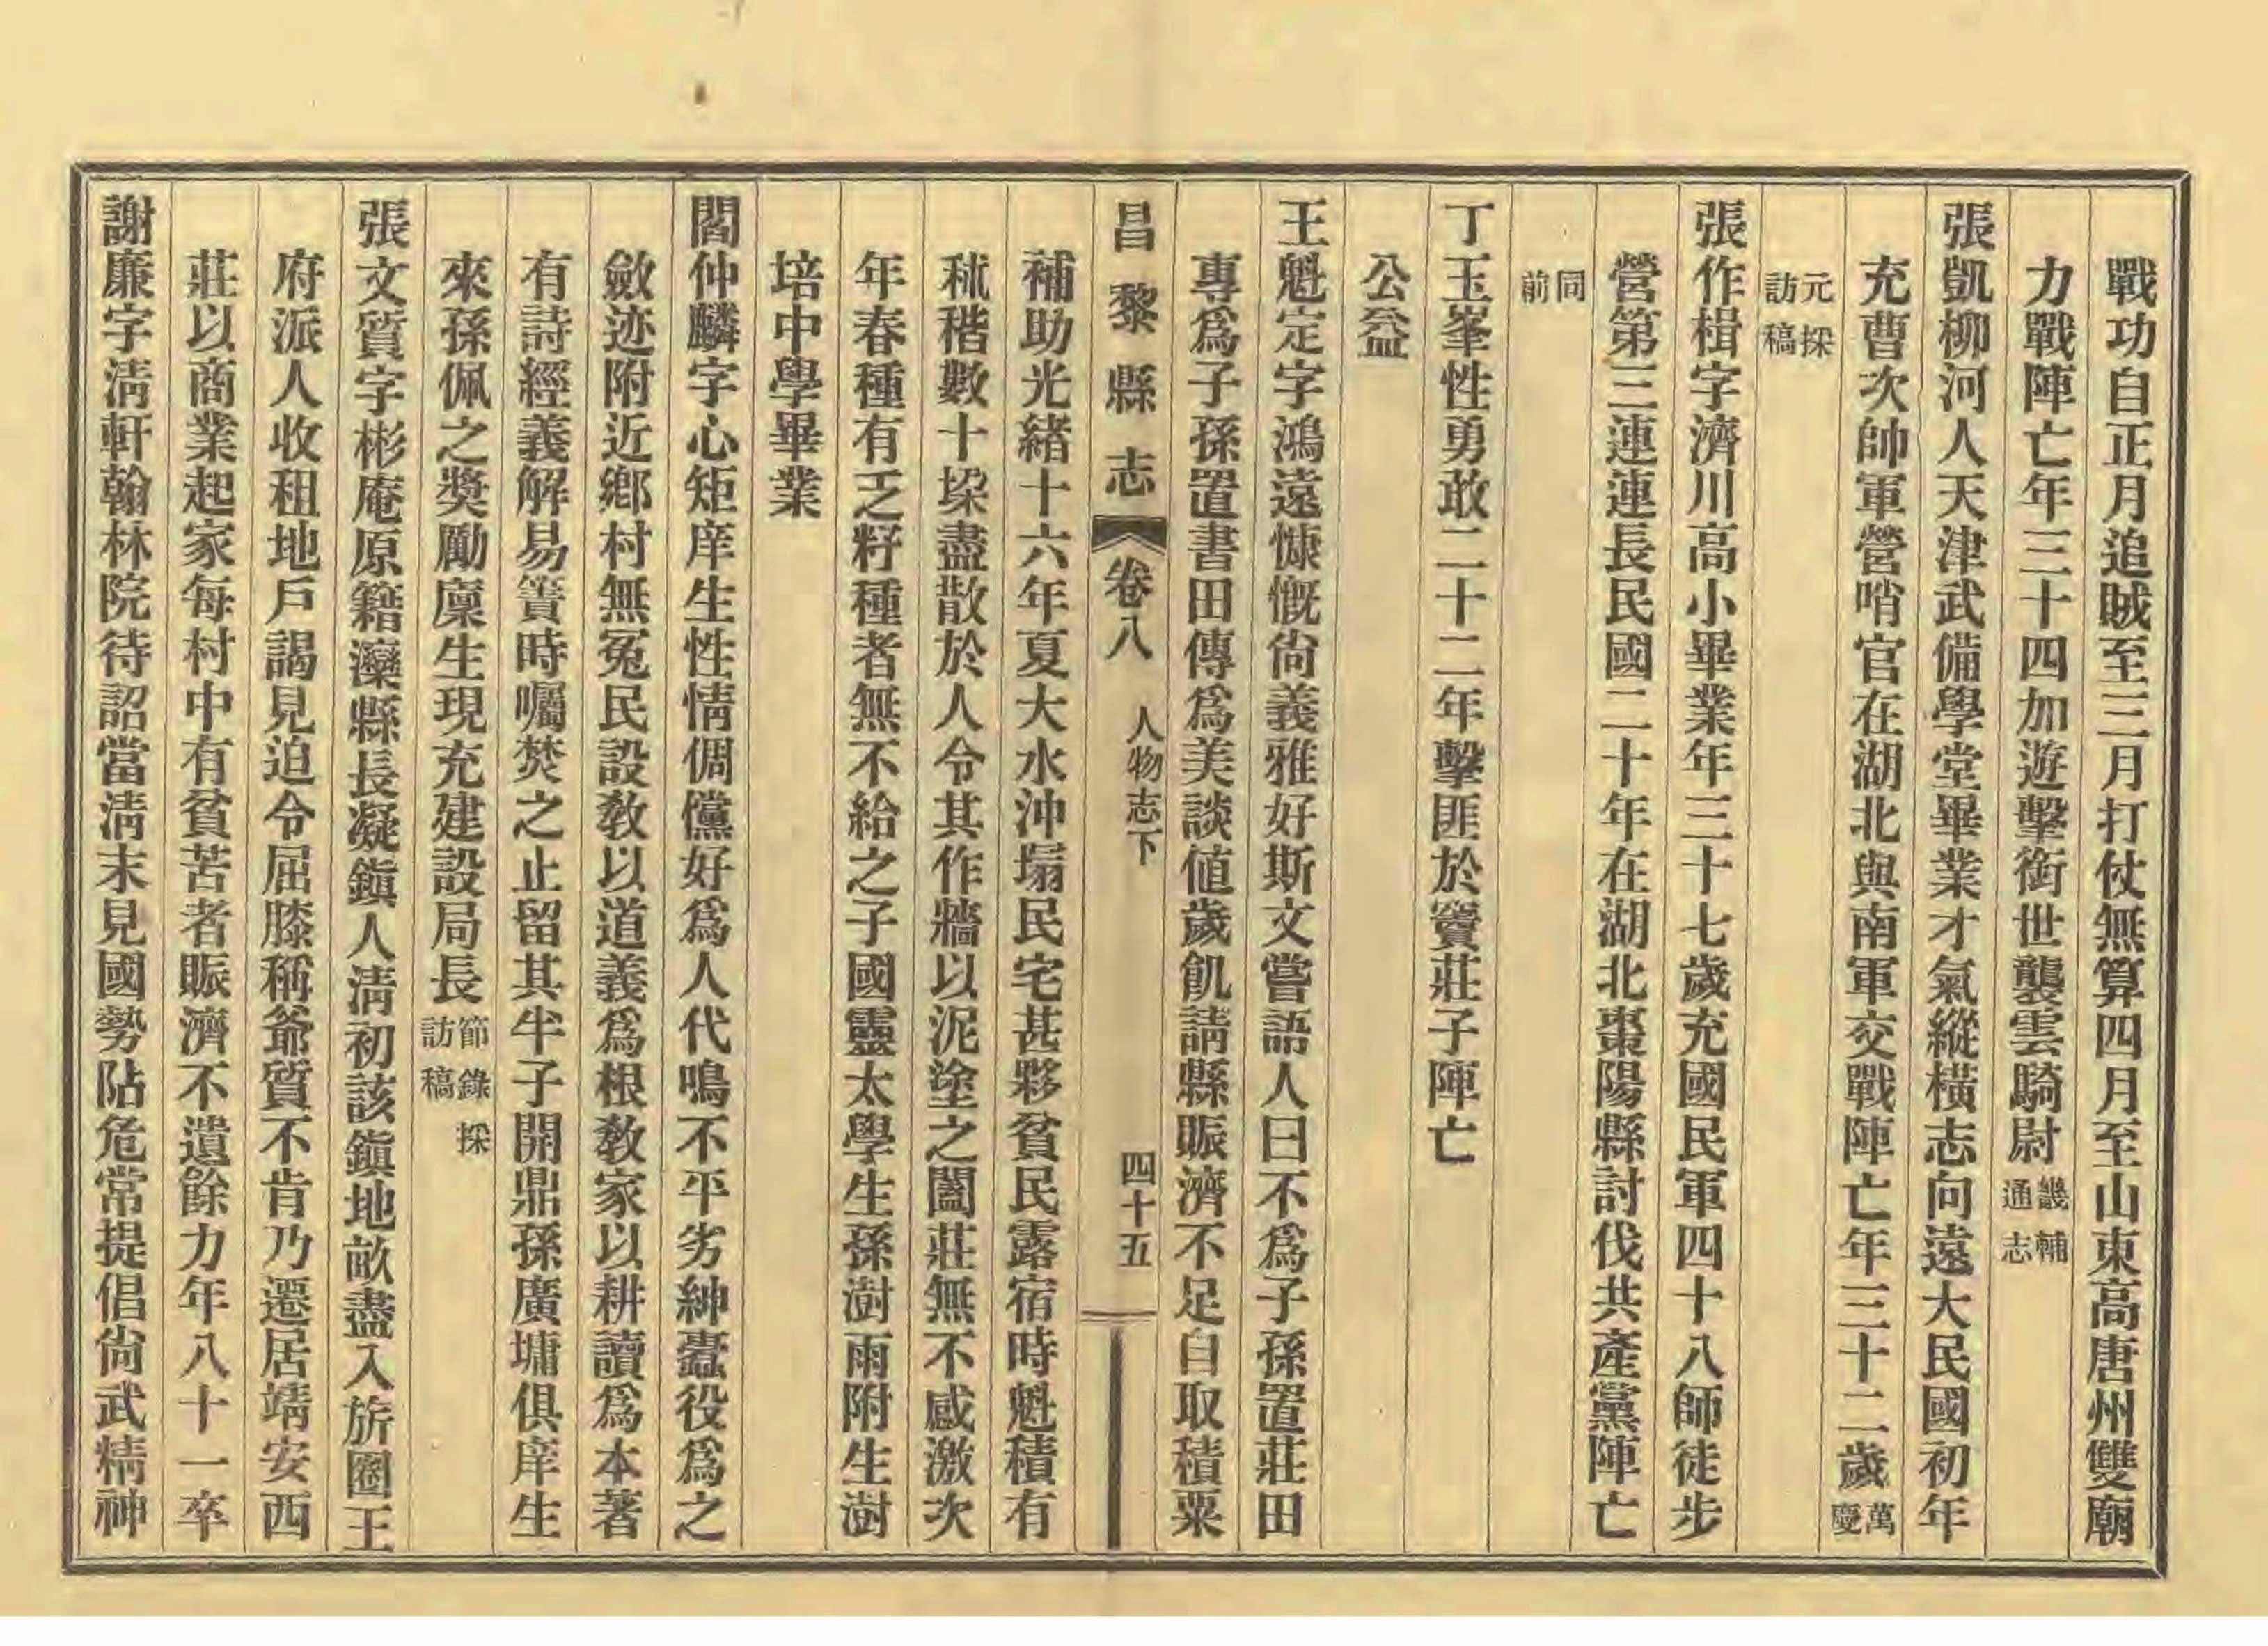 戰功自正月追賊至三月打仗無算四月至山東高唐州雙廟
力戰陣亡年三十四加遊擊銜世襲雲騎尉畿輔通志
張凱柳河人天津武備學堂畢業才氣縱橫志向遠大民國初年
充曹次帥軍營哨官在湖北與南軍交戰陣亡年三十二歲萬慶
元採訪稿
張作楫字濟川高小畢業年三十七歲充國民軍四十八師徒步
營第三連連長民國二十年在湖北棗陽縣討伐共產黨陣亡
同前
丁玉峯性勇敢二十二年擊匪於竇莊子陣亡
公益
王魁定字鴻遠慷慨尙義雅好斯文嘗語人曰不爲子孫置莊田
專爲子孫置書田傳爲美談値歲飢請縣賑濟不足自取積粟
昌黎縣志 卷八 人物志下 四十五
補助光緒十六年夏大水沖塌民宅甚夥貧民露宿時魁積有
秫稭數十垛盡散於人令其作牆以泥塗之闔莊無不感激次
年春種有乏籽種者無不給之子國靈太學生孫澍雨附生澍
培中學畢業
閻仲麟字心矩庠生性情倜儻好爲人代鳴不平劣紳蠹役爲之
斂迹附近鄉村無冤民設敎以道義爲根敎家以耕讀爲本著
有詩經義解易簀時囑焚之止留其半子開鼎孫廣墉俱庠生
來孫佩之獎勵廩生現充建設局長節錄採訪稿
張文質字彬庵原籍灤縣長凝鎭人淸初該鎭地畝盡入旂圈王
府派人收租地戶謁見迫令屈膝稱爺質不肯乃遷居靖安西
莊以商業起家每村中有貧苦者賑濟不遺餘力年八十一卒
謝廉字淸軒翰林院待詔當淸末見國勢阽危常提倡尙武精神